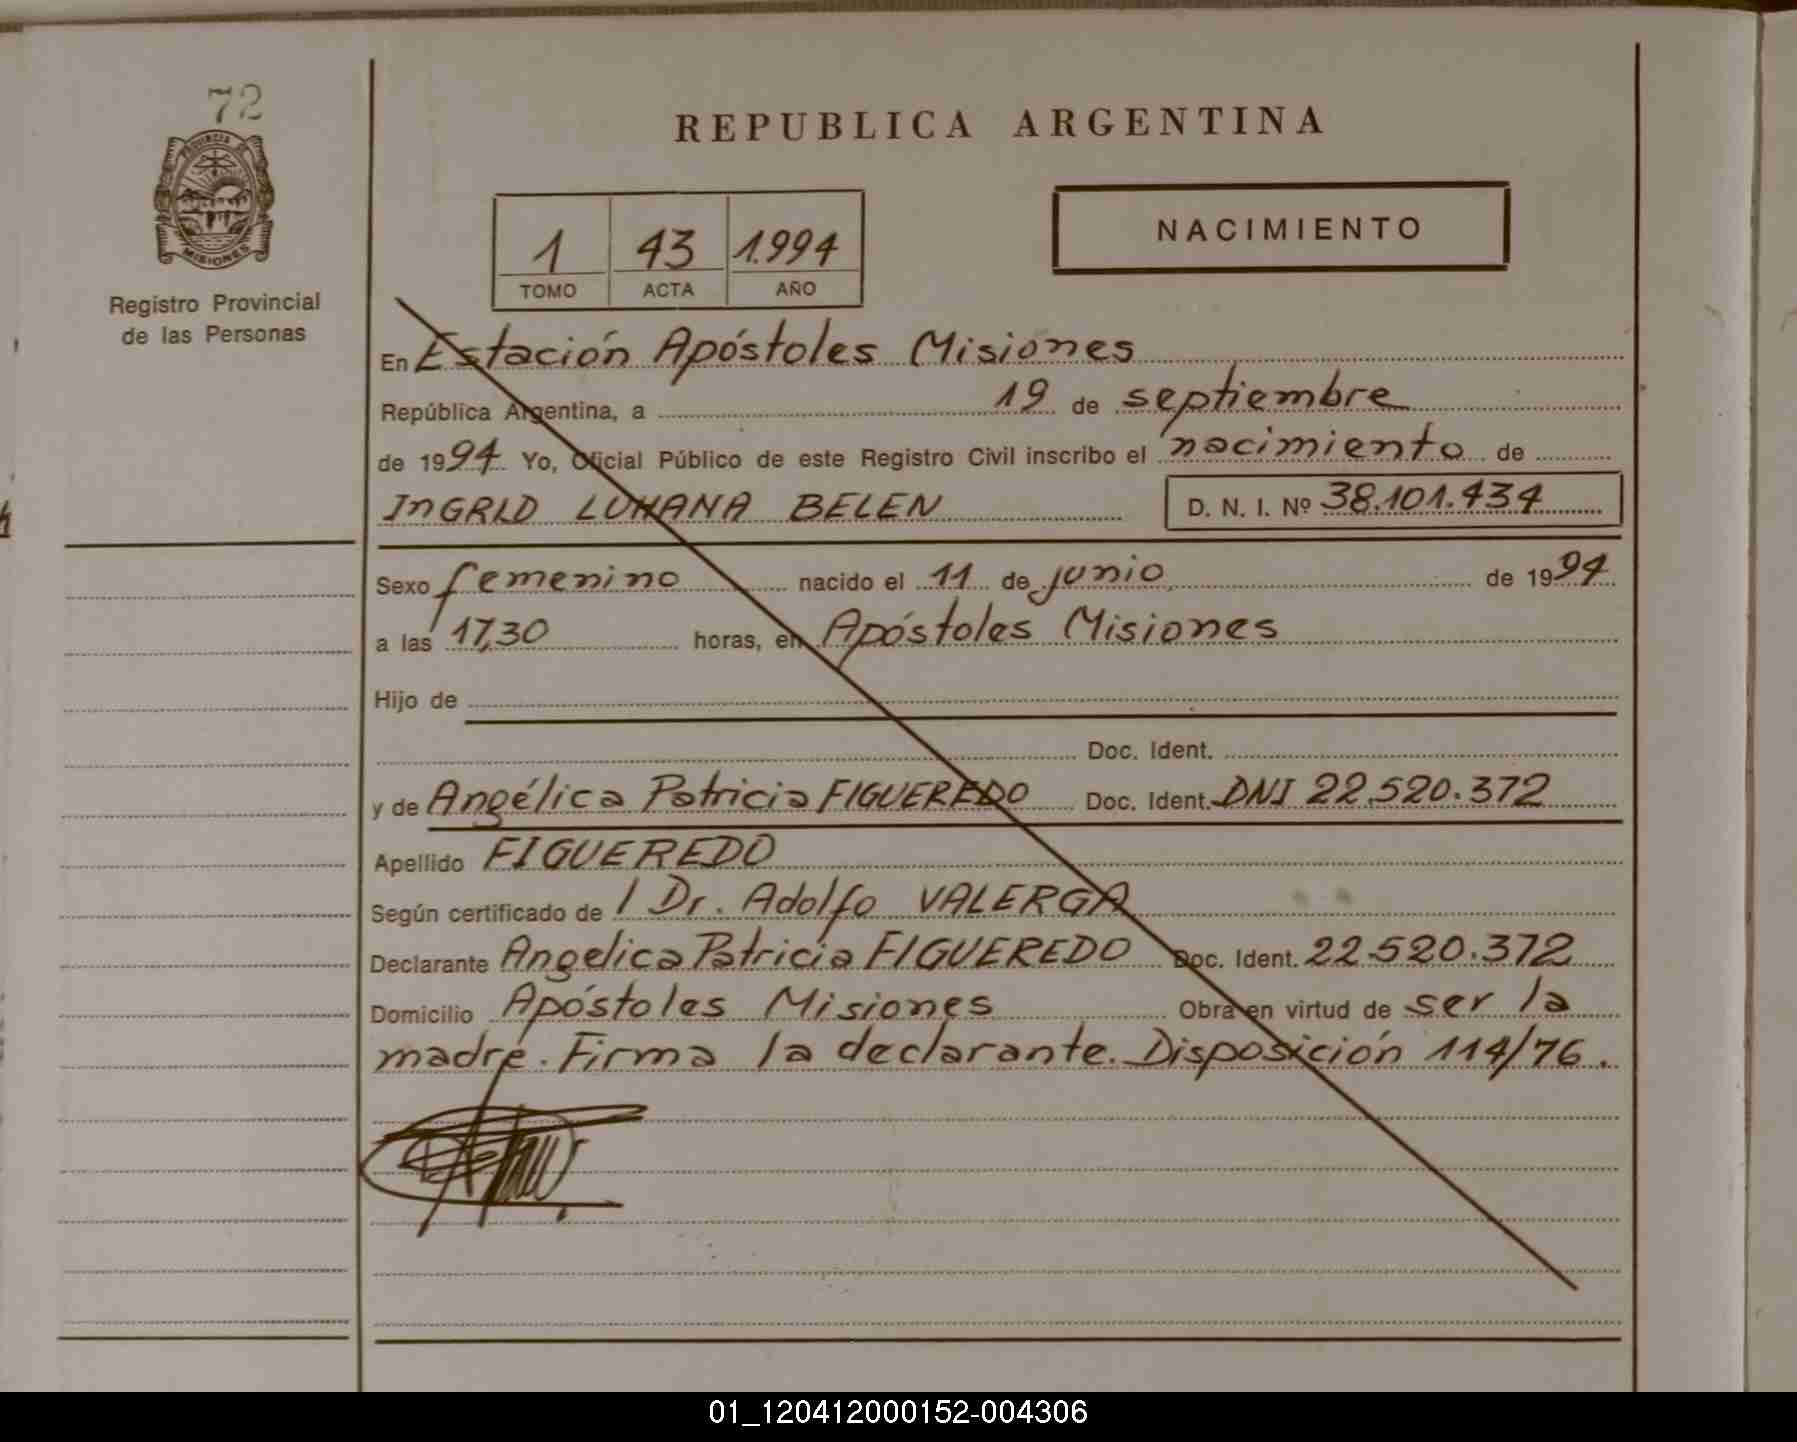 72
PROVINCIA DE
MISIONES
Registro Provincial
de las Personas
REPUBLICA ARGENTINA
1 43 1.994
TOMO ACTA AÑO
NACIMIENTO
En Estación Apóstoles Misiones
República Argentina, a 19 de septiembre
de 1994 Yo, Oficial Público de este Registro Civil inscribo el nacimiento de
InGRID LUHANA BELEN D. N. I. Nº 38.101.434
Sexo femenino nacido el 11 de junio de 1994
a las 17,30 horas, en Apóstoles Misiones
Hijo de
Doc. Ident.
y de Angélica Patricia FIGUEREDO Doc. Ident. DNI 22.520.372
Apellido FIGUEREDO
Según certificado de / Dr. Adolfo VALERGA
Declarante Angelica Patricia FIGUEREDO Doc. Ident. 22.520.372
Domicilio Apóstoles Misiones Obra en virtud de ser la
madre. Firma la declarante. Disposición 114/76.
01_120412000152-004306